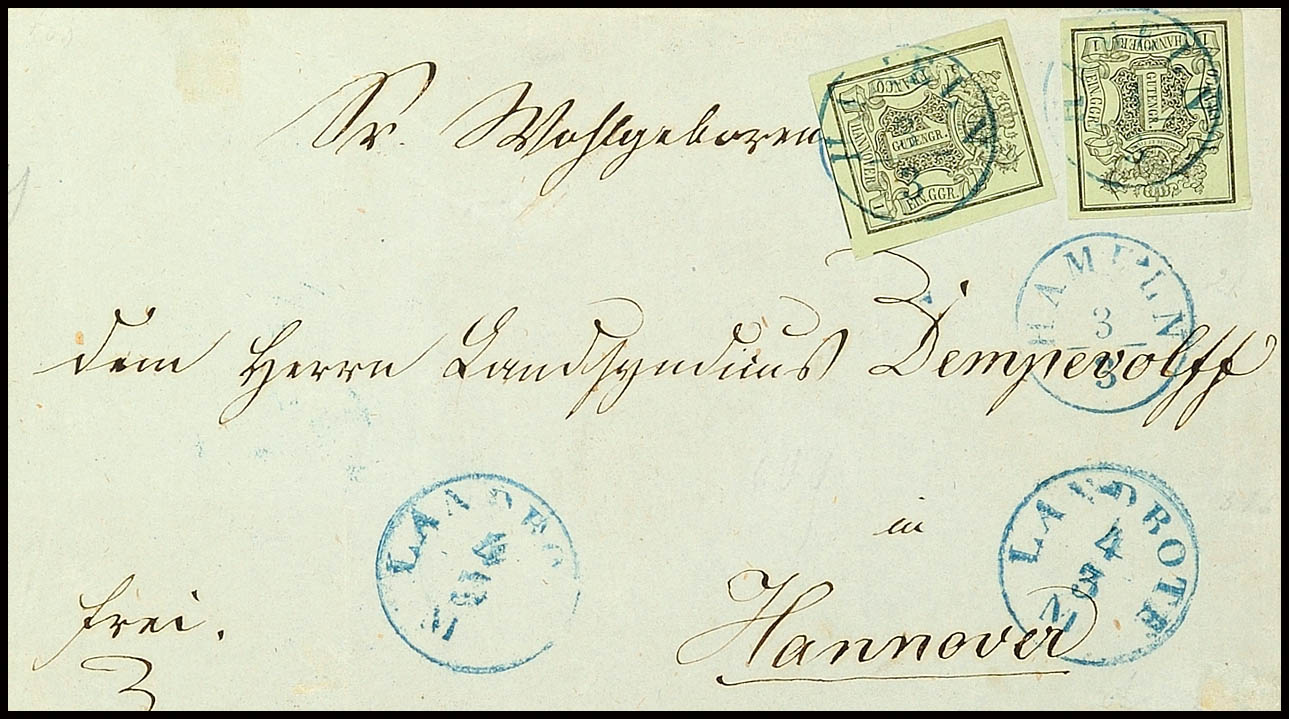 Sr. Wohlgeboren
dem Herrn Landsyndicus Dempewolff
in
Hannover
frei.
HANNOVER
FRANCO
1 GUTENGR.
EIN.GGR.
HANNOVER
1 GUTENGR.
EIN.GGR.
HAMELN
3
HAMELN
3
HAMELN
3
3
LANDBO
4
3
N
LANDBOTE
4
3
N